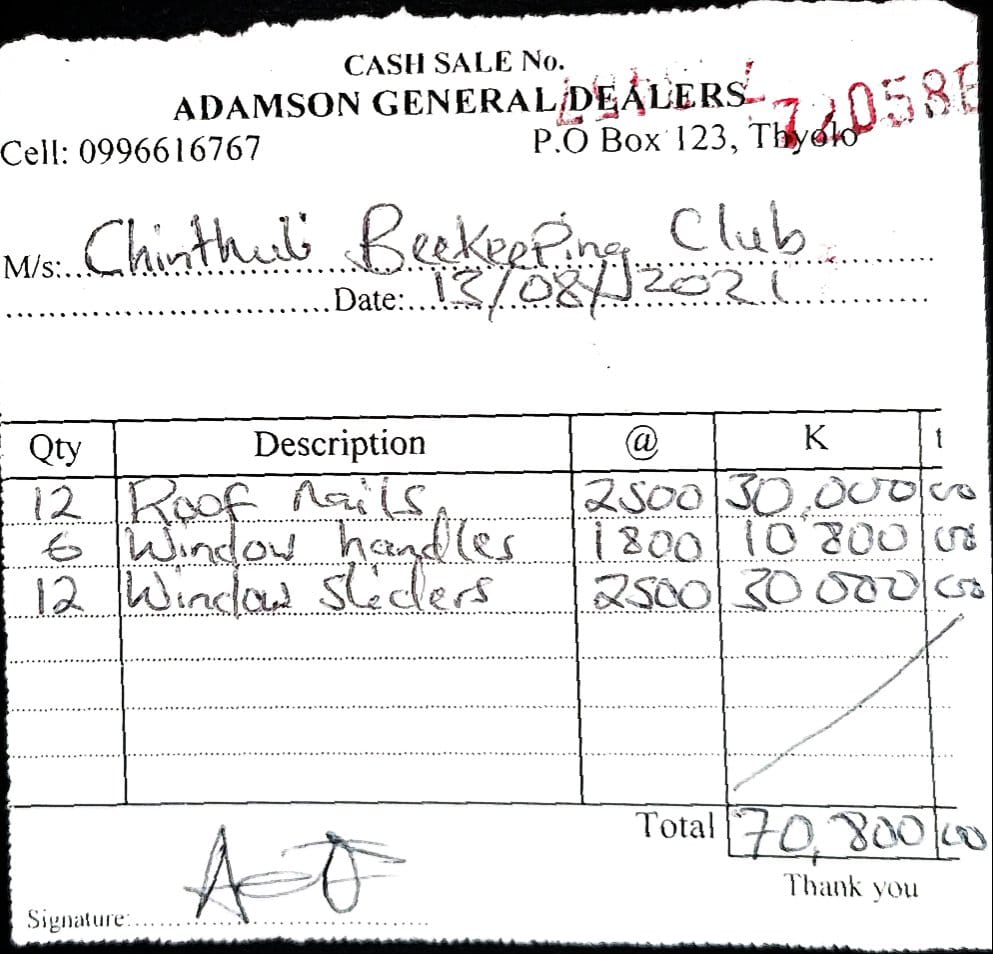 CASH SALE No.
ADAMSON GENERAL DEALERS
Cell: 0996616767 P.O Box 123, Thyolo
M/s: Chinthuli Beekeeping Club
Date: 13/08/2021
Qty Description @ K t
12 Roof nails 2500 30,000 00
6 Window handles 1800 10 800 00
12 Window sliders 2500 30 000 00
Total 70,800 00
Thank you
Signature: